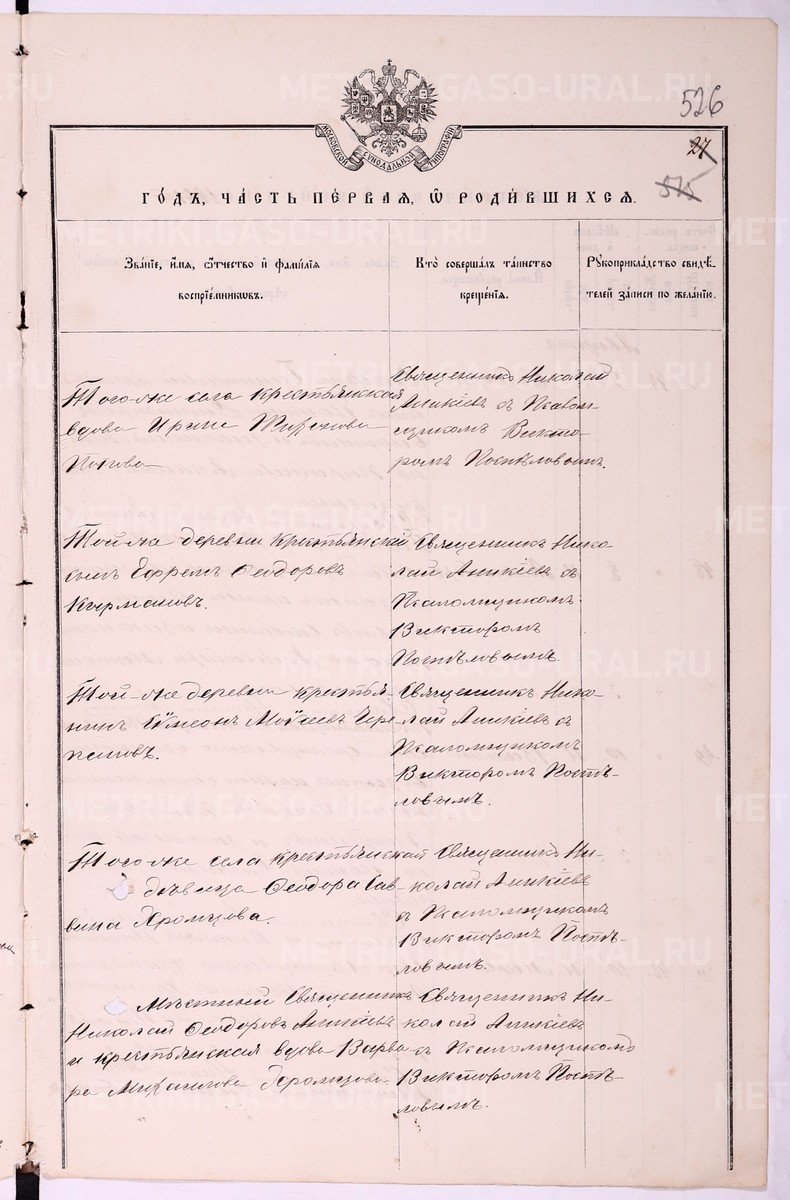 526
27
515
МОСКОВСКОЙ СѴНОДАЛЬНОЙ ТИПОГРАФІИ
ГО́ДЪ, ЧА́СТЬ ПЕ́РВАЯ, Ѡ҆ РОДИ́ВШИХСЯ.
Зва́нїе, и҆́мя, ѻ҆́тчество и҆ фами́лїя
воспрїе́мникѡвъ.
Кто̀ соверша́лъ та́инство
креще́нїя.
Рꙋкоприкла́дство свидѣ́-
телей за́писи по жела́нїю.
Того-же села крестьянская
вдова Ирина
Попова
Священникъ Николай
Аникіевъ съ Псалом-
щикомъ Викто-
ромъ Поспѣловымъ.
Той-же деревни крестьянскій
сынъ Ефремъ Ѳеодоровъ
Кырмановъ.
Священникъ Нико
лай Аникіевъ съ
Псаломщикомъ
Викторомъ
Поспѣловымъ.
Той-же деревни крестья-
нинъ Сѵмеонъ Моѵсеевъ Чере
пановъ.
Священникъ Нико-
лай Аникіевъ съ
Псаломщикомъ
Викторомъ Поспѣ-
ловымъ.
Того-же села крестьянская
дѣвица Ѳеодора Сав-
вина Хромцова.
Священникъ Ни-
колай Аникіевъ
съ Псаломщикомъ
Викторомъ Поспѣ-
ловымъ.
Мѣстный Священникъ
Николай Ѳеодоровъ Аникіевъ
и крестьянская вдова Варва
ра Михаилова Хромцова.
Священникъ Ни-
колай Аникіевъ
съ Псаломщикомъ
Викторомъ Поспѣ-
ловымъ.
METRIKI.GASO-URAL.RU